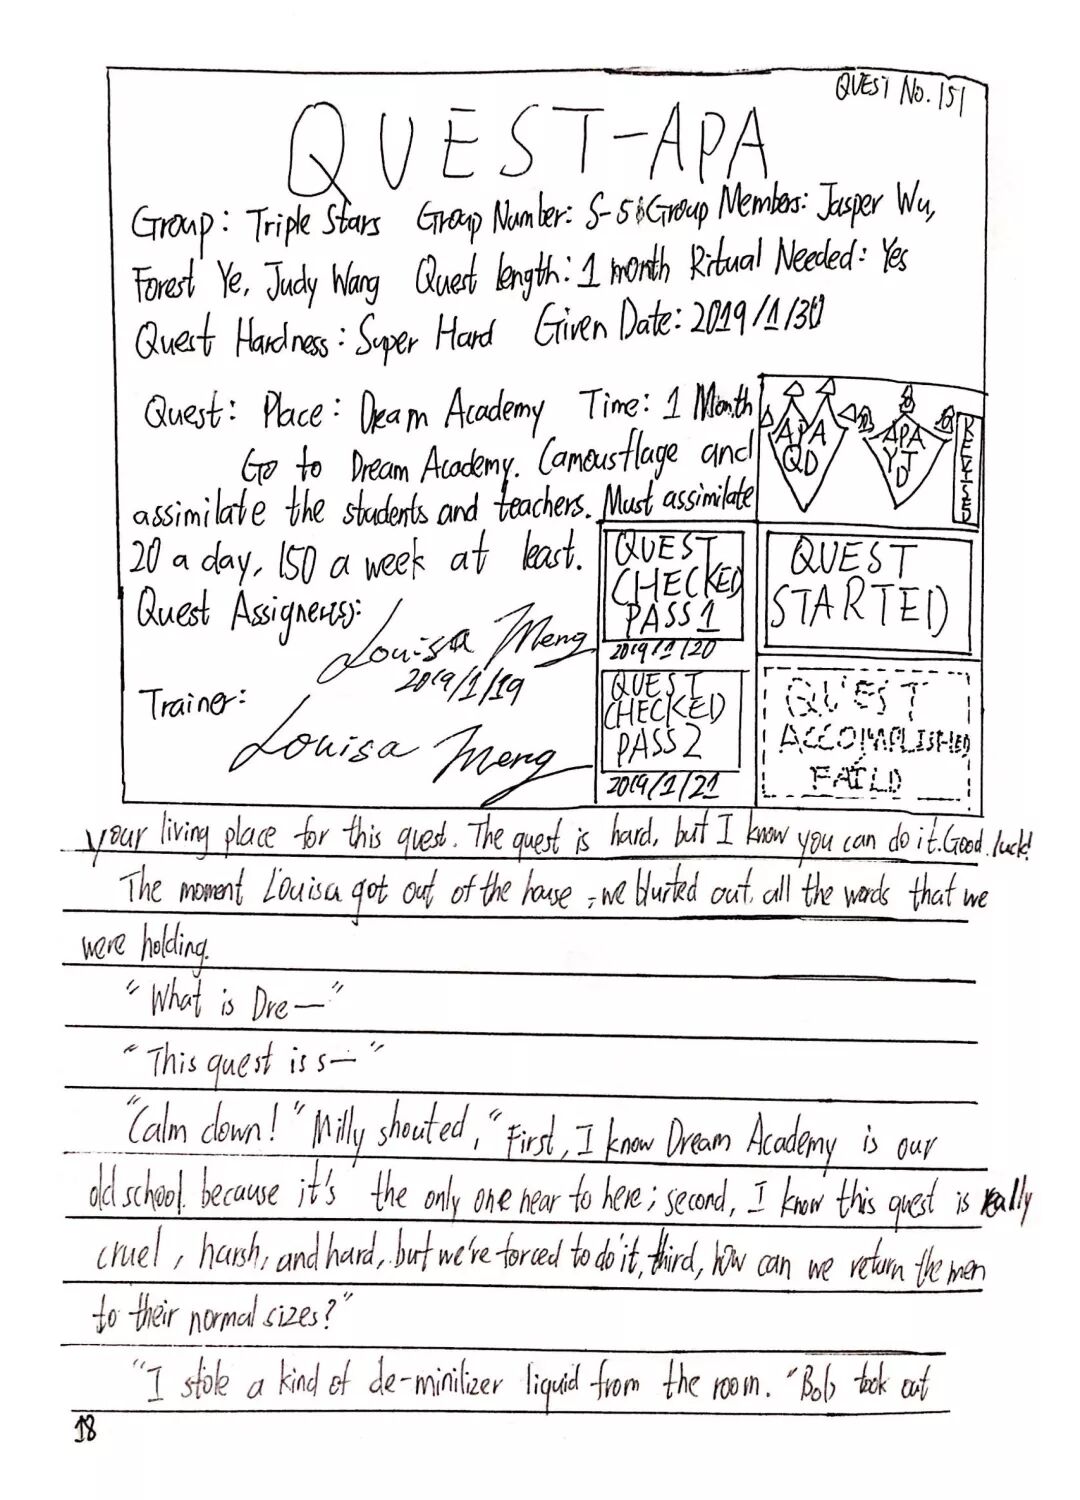 QUEST No. 151
QUEST-APA
Group: Triple Stars Group Number: S-5 Group Members: Jasper Wu,
Forest Ye, Judy Wang Quest length: 1 month Ritual Needed: Yes
Quest Hardness: Super Hard Given Date: 2019/1/30
Quest: Place: Dream Academy Time: 1 Month
Go to Dream Academy. Camousflage and
assimilate the students and teachers. Must assimilate
20 a day, 150 a week at least.
Quest Assigner(s):
Louisa Meng
2019/1/19
Trainer:
Louisa Meng
APA
QD
APA
YJ
D
REVISED
QUEST
CHECKED
PASS 1
2019/1/20
QUEST
STARTED
QUEST
CHECKED
PASS 2
2019/1/21
QUEST
ACCOMPLISHED
FAILD
your living place for this quest. The quest is hard, but I know you can do it. Good luck!
The moment Louisa got out of the house, we blurted out all the words that we
were holding.
"What is Dre—"
"This quest is s—"
"Calm down!" Milly shouted, "First, I know Dream Academy is our
old school because it's the only one near to here; second, I know this quest is really
cruel, harsh, and hard, but we're forced to do it, third, how can we return the men
to their normal sizes?"
"I stole a kind of de-minilizer liquid from the room. "Bob took out
18